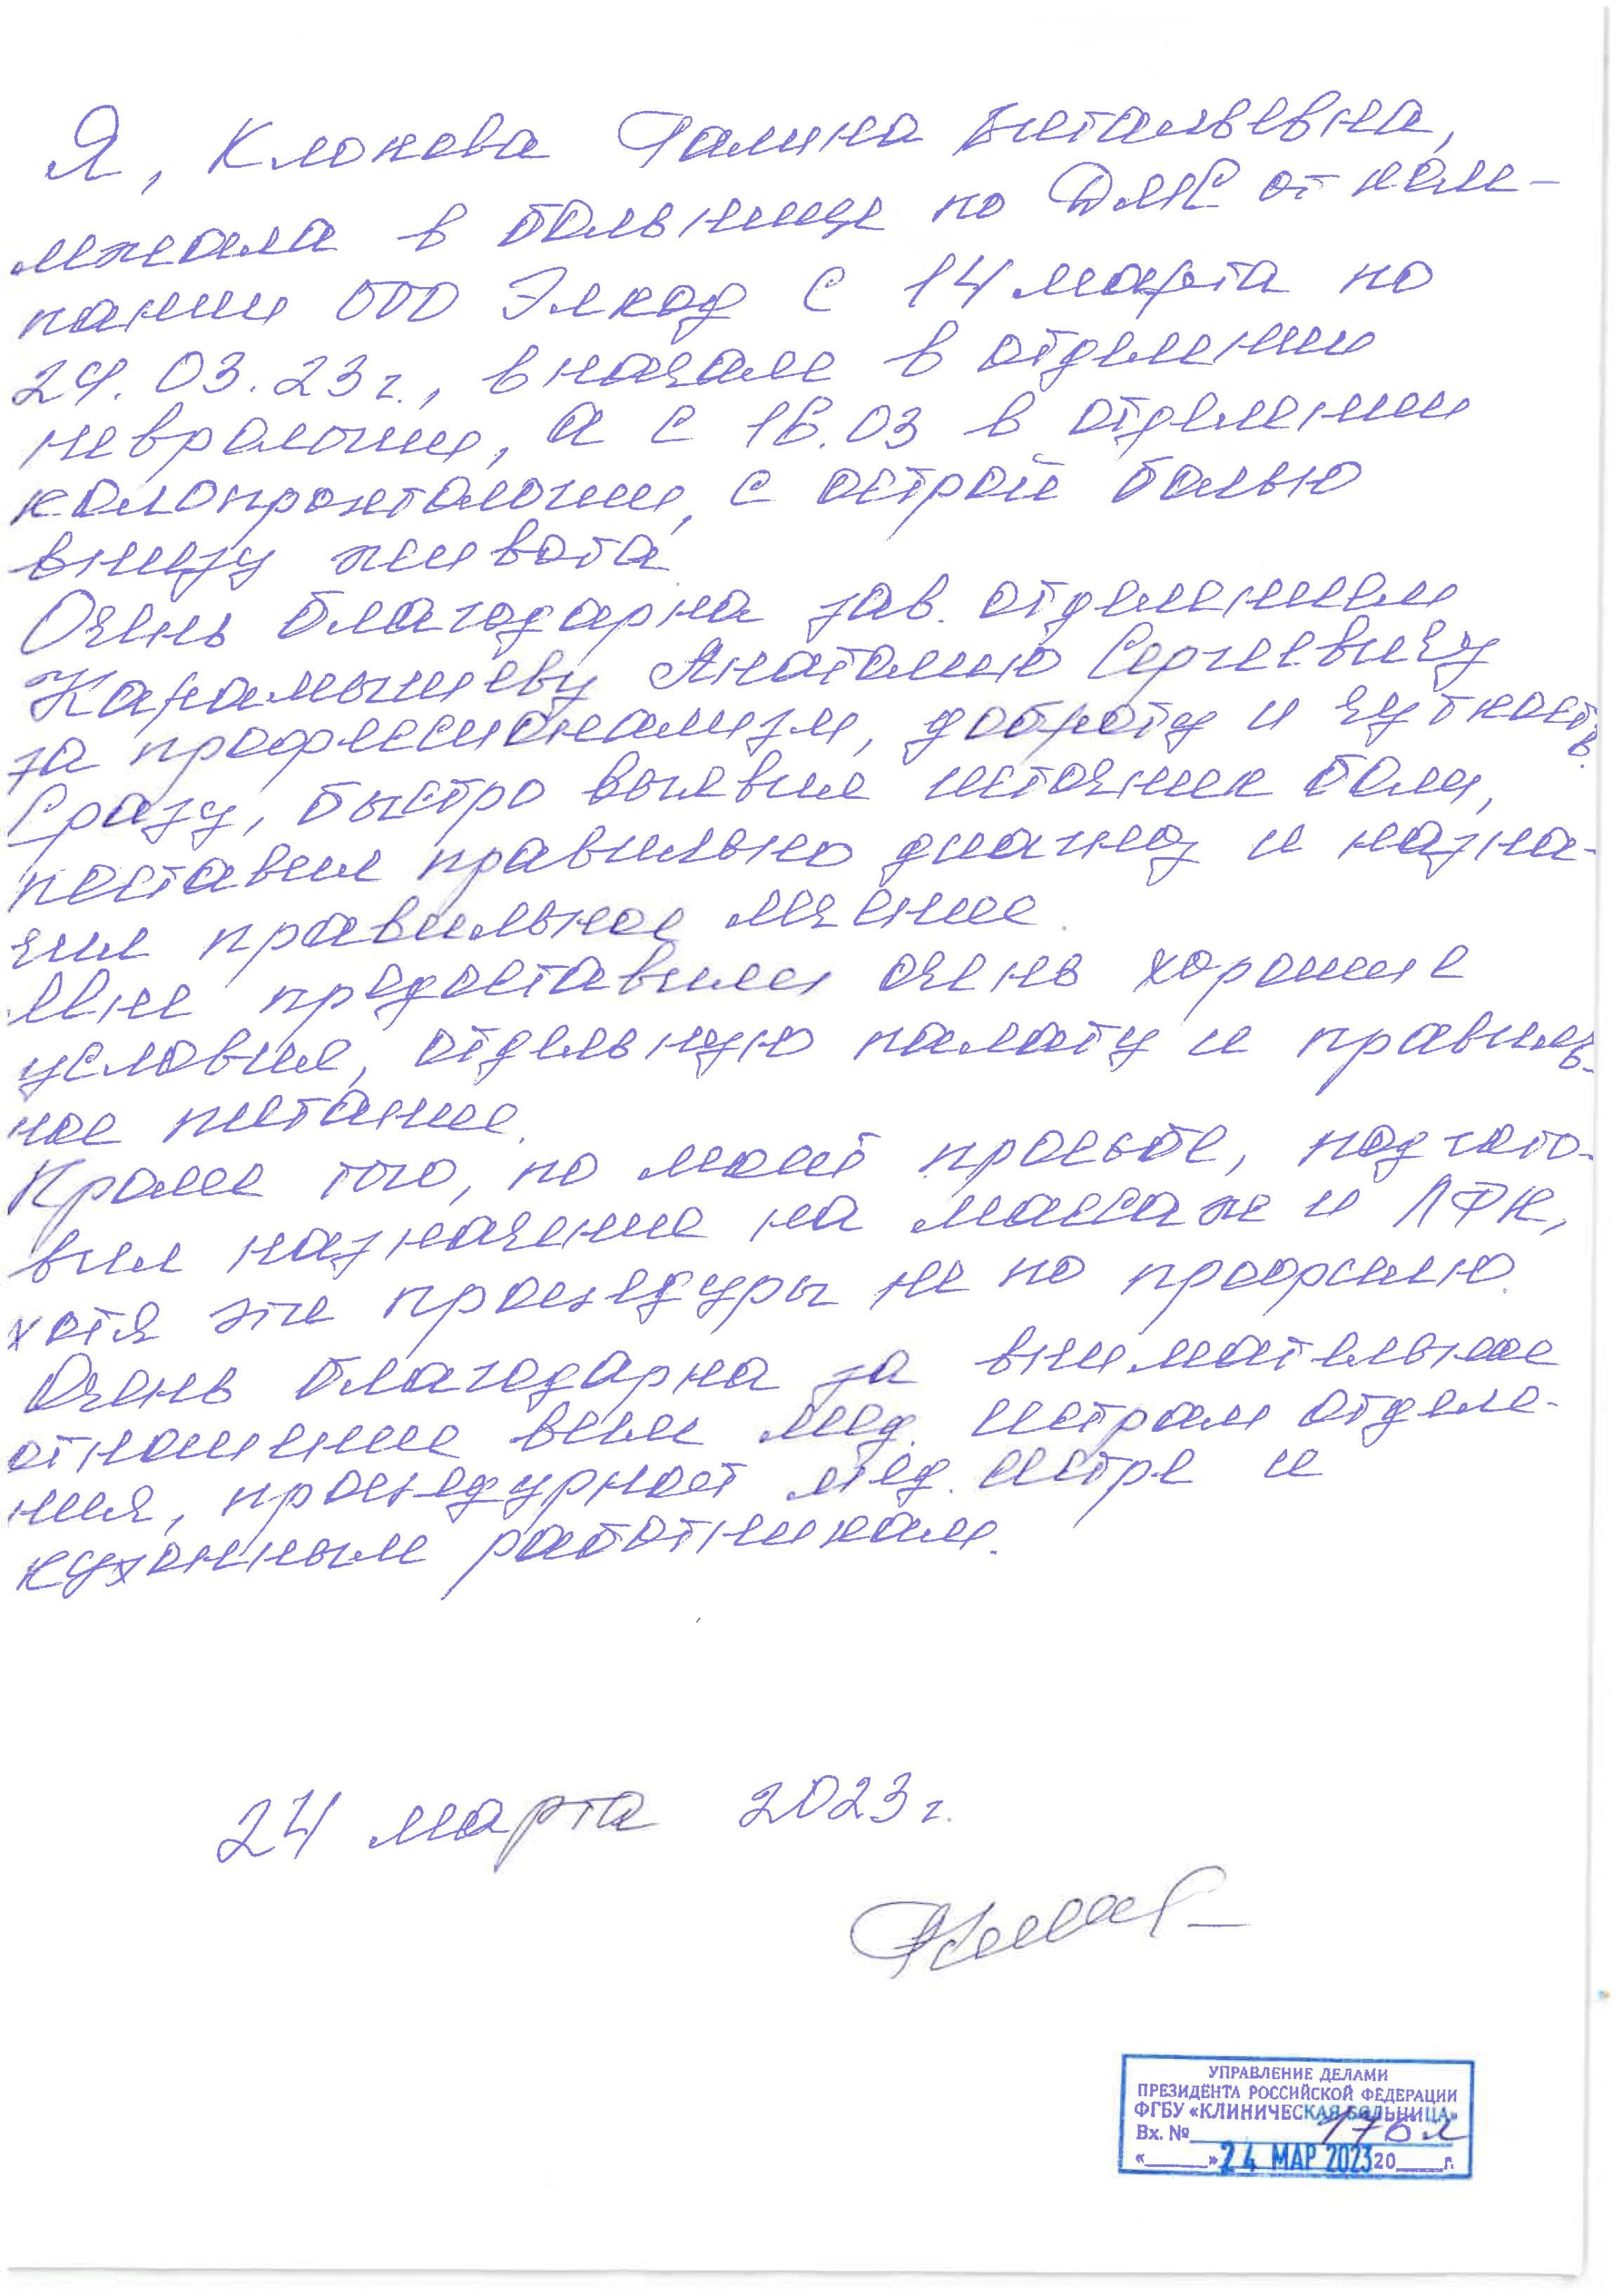 Я, Клокова Галина Витальевна,
лежала в больнице по ДМС от ком-
пании ООО Элкод с 14 марта по
24.03.23г., вначале в отделении
неврологии, а с 16.03 в отделении
колопроктологии, с острой болью
внизу живота
Очень благодарна зав. отделением
Карамышеву Анатолию Сергеевичу
за профессионализм, доброту и чуткость.
Сразу, быстро выявил источник боли,
поставил правильно диагноз и назна-
чил правильное лечение.
Мне предоставили очень хорошие
условия, отдельную палату и правиль-
ное питание.
Кроме того, по моей просьбе, подгото-
вил назначение на массаж и ЛФК,
хотя эти процедуры не по профилю.
Очень благодарна за внимательное
отношение всем мед. сестрам отделе-
ния, процедурной мед. сестре и
кухонным работникам.
24 марта 2023 г.
УПРАВЛЕНИЕ ДЕЛАМИ
ПРЕЗИДЕНТА РОССИЙСКОЙ ФЕДЕРАЦИИ
ФГБУ «КЛИНИЧЕСКАЯ БОЛЬНИЦА»
Вх. №
«____» 24 МАР 2023 20____г.